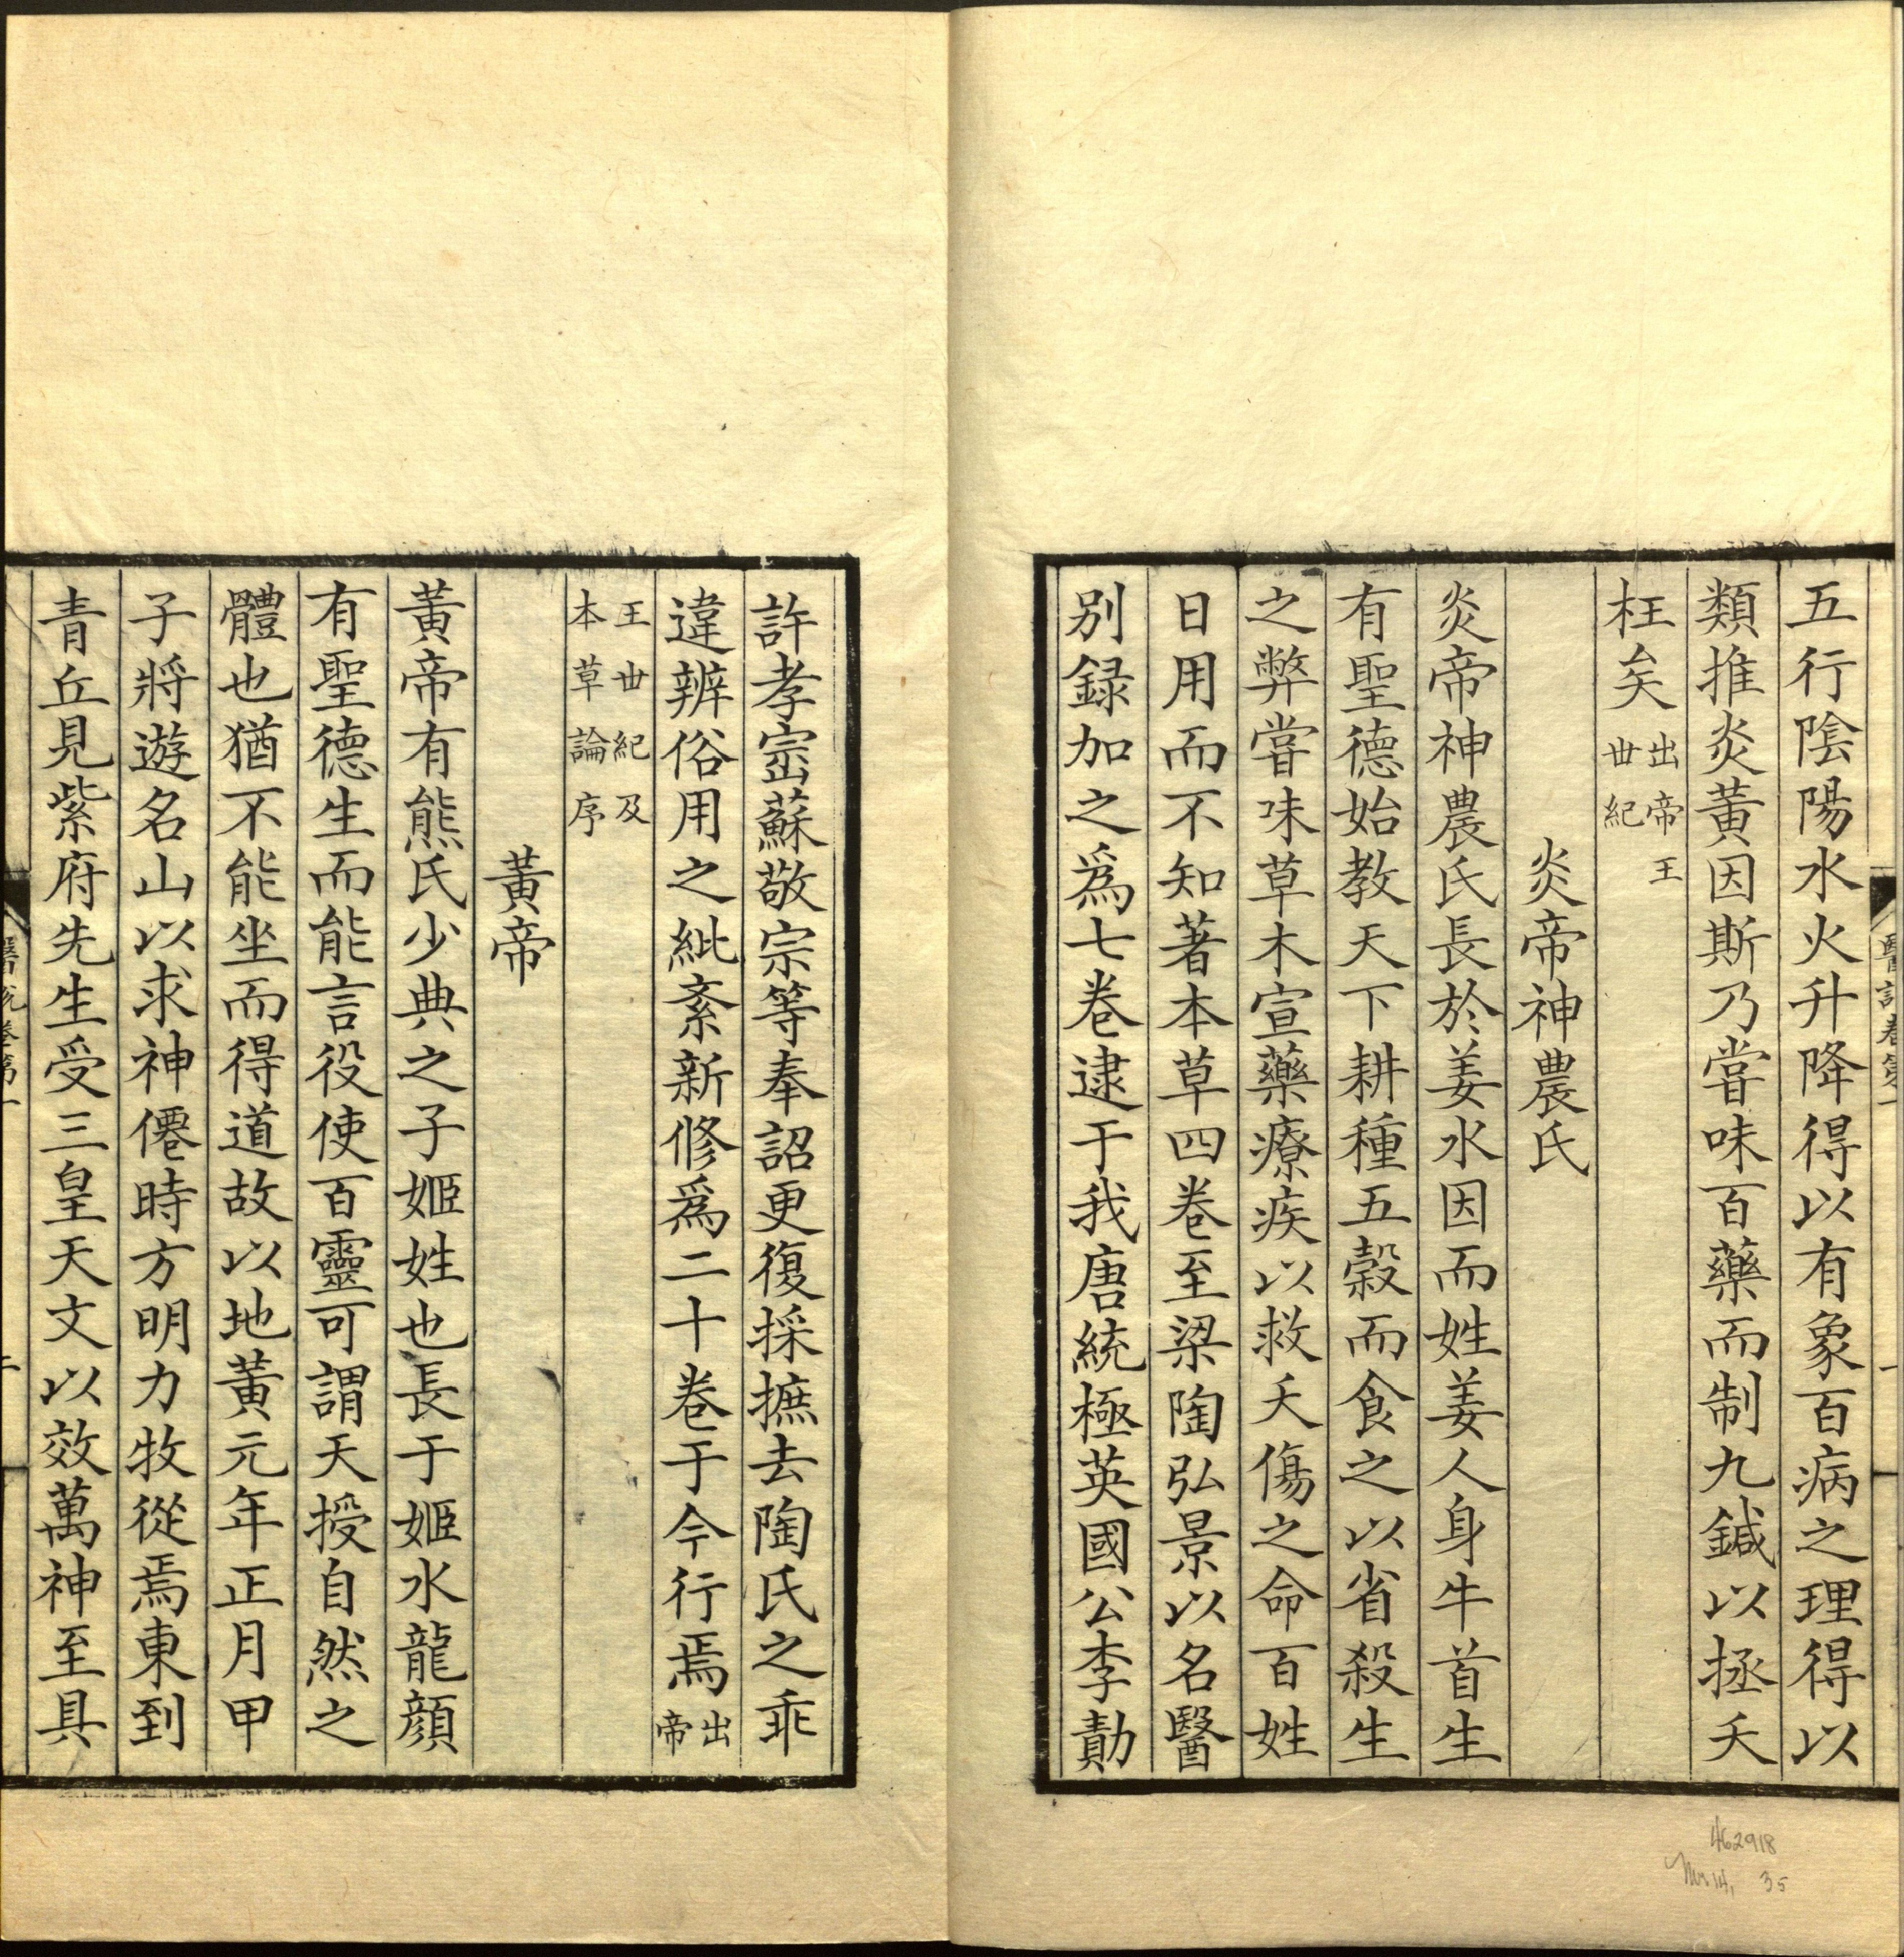 五行陰陽水火升降得以有象百病之理得以
類推炎黃因斯乃嘗味百藥而制九鍼以拯夭
枉矣出帝王世紀
炎帝神農氏
炎帝神農氏長於姜水因而姓姜人身牛首生
有聖德始教天下耕種五穀而食之以省殺生
之弊嘗味草木宣藥療疾以救夭傷之命百姓
日用而不知著本草四卷至梁陶弘景以名醫
别録加之爲七卷逮于我唐統極英國公李勣
許孝崇蘇敬宗等奉詔更復採摭去陶氏之乖
違辨俗用之紕紊新修爲二十卷于今行焉出帝
王世紀及本草論序
黃帝
黃帝有熊氏少典之子姬姓也長于姬水龍顔
有聖德生而能言役使百靈可謂天授自然之
體也猶不能坐而得道故以地黃元年正月甲
子將遊名山以求神僊時方明力牧從焉東到
青丘見紫府先生受三皇天文以效萬神至具
462918
35